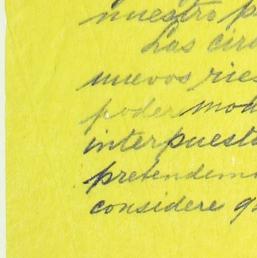 nuestro p
Las circ
nuevos ries
poder mod
interpuesta
pretendemo
considere q